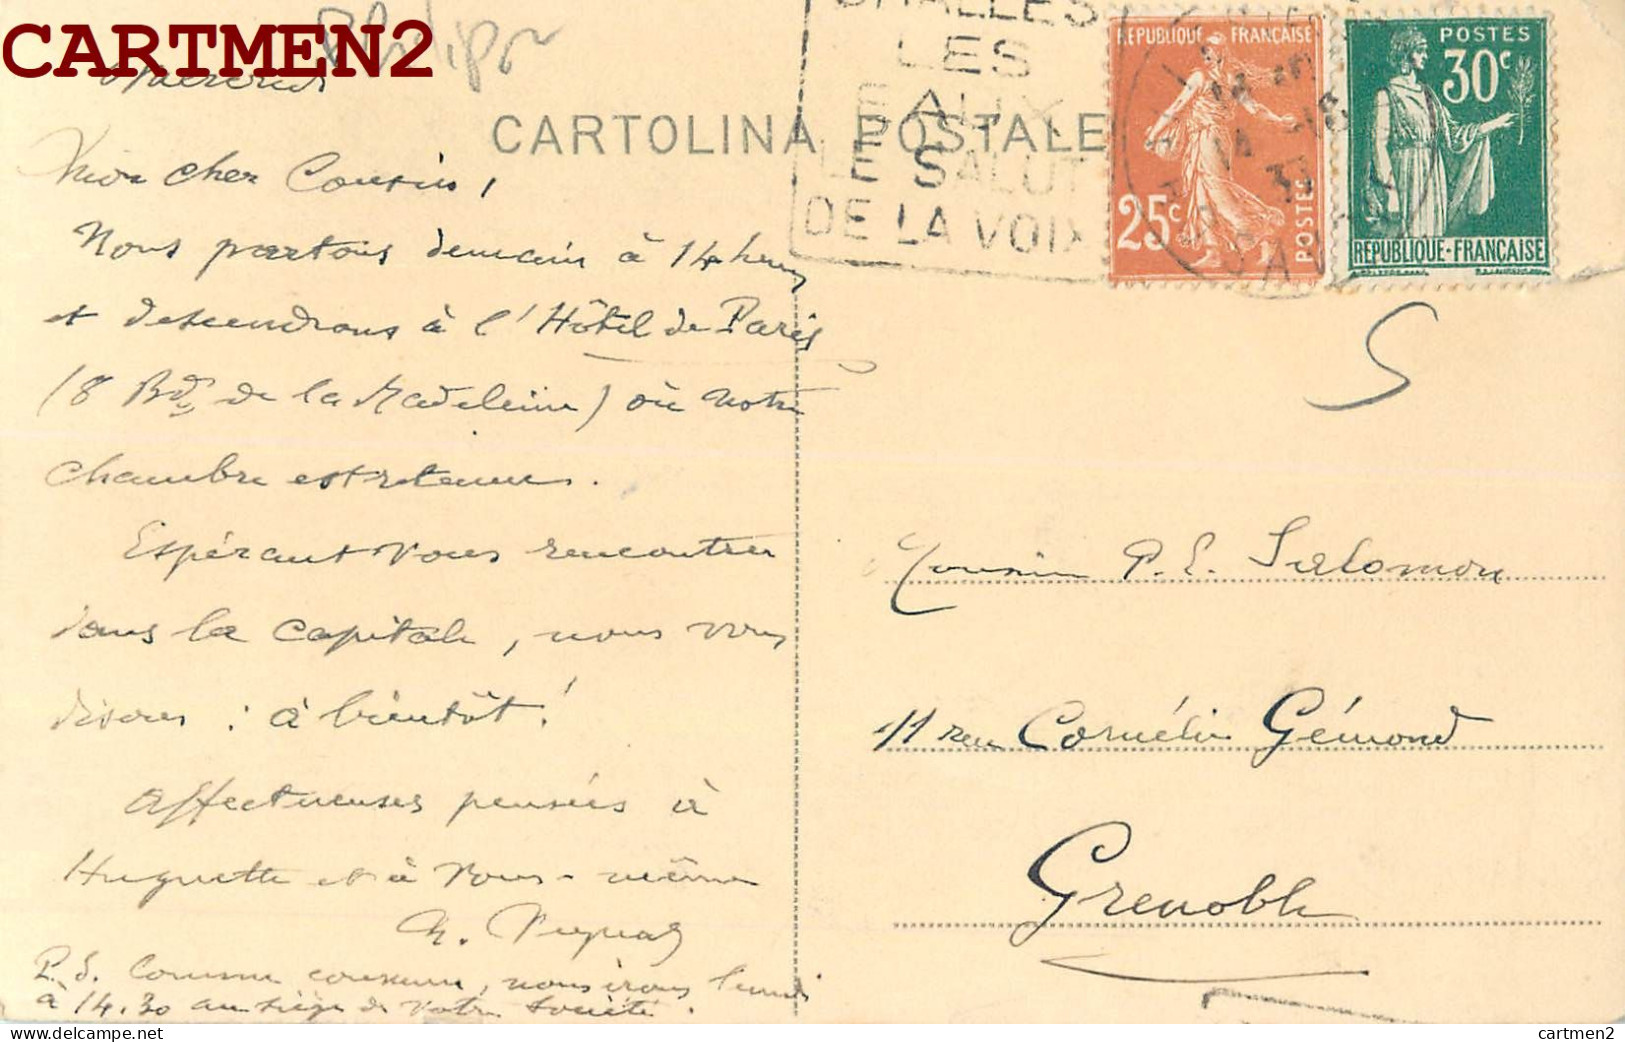 CARTMEN2
Mercredi
CARTOLINA POSTALE
CHALLES
LES
EAUX
LE SALUT
DE LA VOIX
REPUBLIQUE FRANÇAISE
25c
POSTES
POSTES
30c
REPUBLIQUE-FRANÇAISE
Mon cher Cousin,
Nous partons demain à 14 heures
et descendrons à l'Hôtel de Paris
(8 Bd de la Madeleine) où notre
chambre est retenue.
Espérant vous rencontrer
dans la capitale, nous vous
disons : à bientôt !
Affectueuses pensées à
Huguette et à vous-même
P.S. Comme convenu, nous irons lundi
à 14.30 au siège de votre Société.
S
P. E. Salomon
11 rue Cornélie Gémond
Grenoble
cartmen2